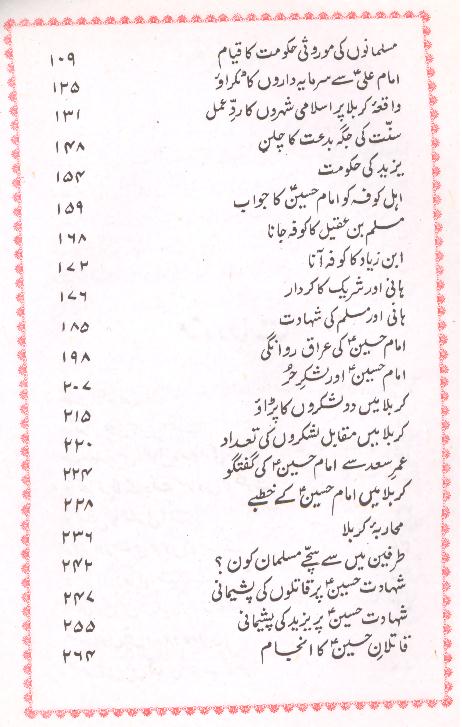 مسلمانوں کی موروثی حکومت کا قیام ۱۰۹
امام علیؑ سے سرمایہ داروں کا ٹکراؤ ۱۲۵
واقعۂ کربلا پر اسلامی شہروں کا ردِّ عمل ۱۳۱
سنّت کی جگہ بدعت کا چلن ۱۴۸
یزید کی حکومت ۱۵۴
اہل کوفہ کو امام حسینؑ کا جواب ۱۵۹
مسلم بن عقیل کا کوفہ جانا ۱۶۸
ابن زیاد کا کوفہ آنا ۱۷۲
ہانی اور شریک کا کردار ۱۷۶
ہانی اور مسلم کی شہادت ۱۸۵
امام حسینؑ کی عراق روانگی ۱۹۸
امام حسینؑ اور لشکرِ حُر ۲۰۷
کربلا میں دو لشکروں کا پڑاؤ ۲۱۵
کربلا میں مقابل لشکروں کی تعداد ۲۲۰
عمر سعد سے امام حسینؑ کی گفتگو ۲۲۴
کربلا میں امام حسینؑ کے خطبے ۲۲۸
محاربۂ کربلا ۲۳۶
طرفین میں سے سچّے مسلمان کون؟ ۲۴۲
شہادت حسینؑ پر قاتلوں کی پشیمانی ۲۴۷
شہادت حسینؑ پر یزید کی پشیمانی ۲۵۵
قاتلانِ حسینؑ کا انجام ۲۶۴